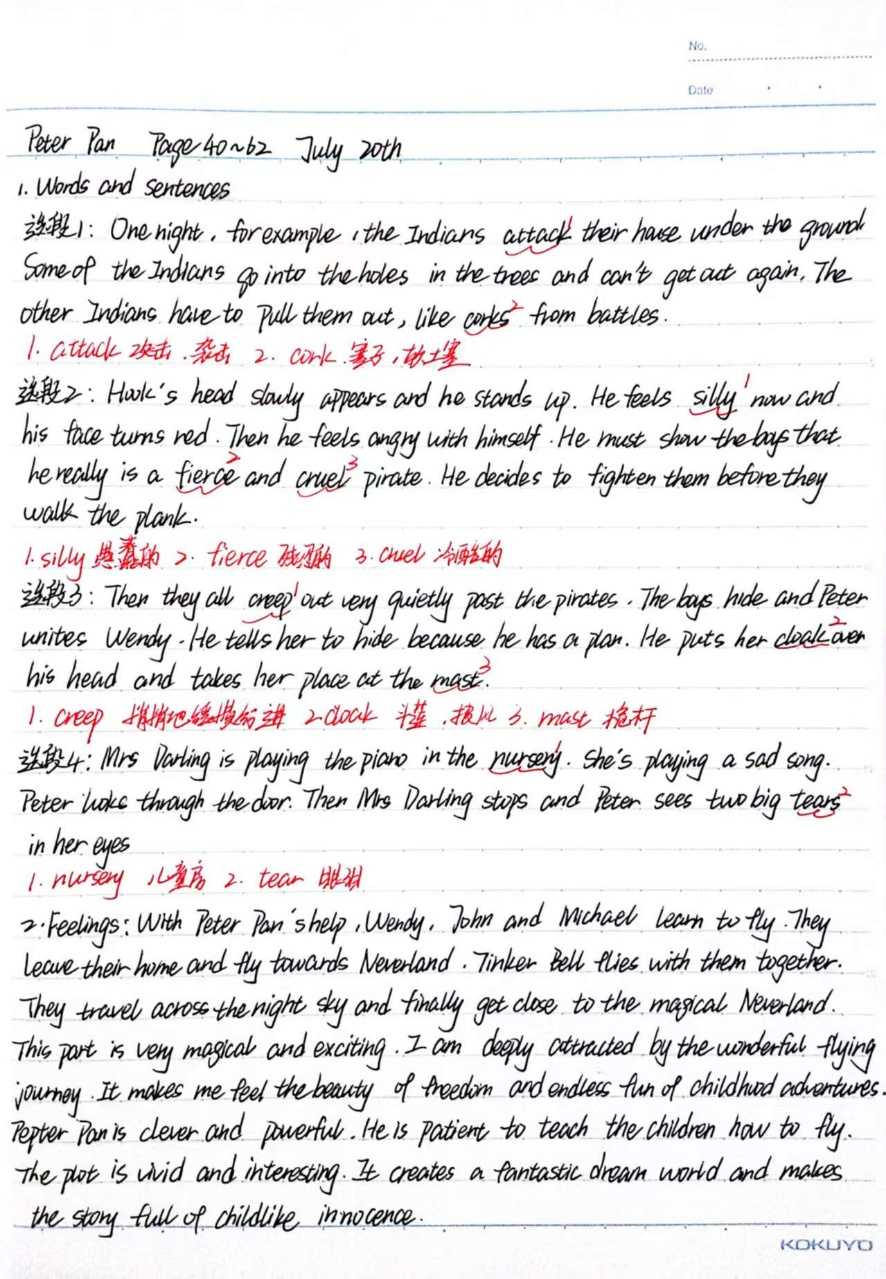 No.
Date
Peter Pan Page 40~62 July 20th
1. Words and sentences
选段1: One night, for example, the Indians attack¹ their house under the ground
Some of the Indians go into the holes in the trees and can't get out again. The
other Indians have to pull them out, like corks² from battles.
1. attack 攻击.袭击 2. cork 塞子,软木塞
选段2: Hook's head slowly appears and he stands up. He feels silly¹ now and
his face turns red. Then he feels angry with himself. He must show the boys that
he really is a fierce² and cruel³ pirate. He decides to fighten them before they
walk the plank.
1. silly 愚蠢的 2. fierce 残忍的 3. cruel 冷酷的
选段3: Then they all creep¹ out very quietly past the pirates. The boys hide and Peter
unites Wendy. He tells her to hide because he has a plan. He puts her cloak² over
his head and takes her place at the mast³.
1. creep 悄悄地缓慢行进 2. cloak 斗篷.披风 3. mast 桅杆
选段4: Mrs Darling is playing the piano in the nursery¹. She's playing a sad song.
Peter looks through the door. Then Mrs Darling stops and Peter sees two big tears²
in her eyes
1. nursery 儿童房 2. tear 眼泪
2. Feelings: With Peter Pan's help, Wendy, John and Michael learn to fly. They
leave their home and fly towards Neverland. Tinker Bell flies with them together.
They travel across the night sky and finally get close to the magical Neverland.
This part is very magical and exciting. I am deeply attracted by the wonderful flying
journey. It makes me feel the beauty of freedom and endless fun of childhood adventures.
Pepter Pan is clever and powerful. He is patient to teach the children how to fly.
The plot is vivid and interesting. It creates a fantastic dream world and makes
the story full of childlike innocence.
KOKUYO